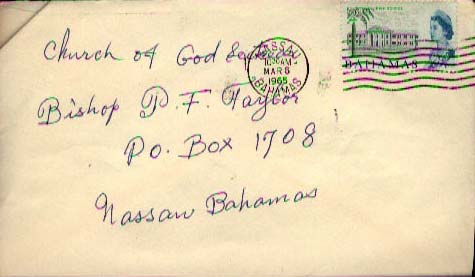 Church of God
Bishop P. F. Taylor
P.O. Box 1708
Nassaw Bahamas
NASSAU
10:30AM
MAR 8
1965
BAHAMAS
BAHAMAS